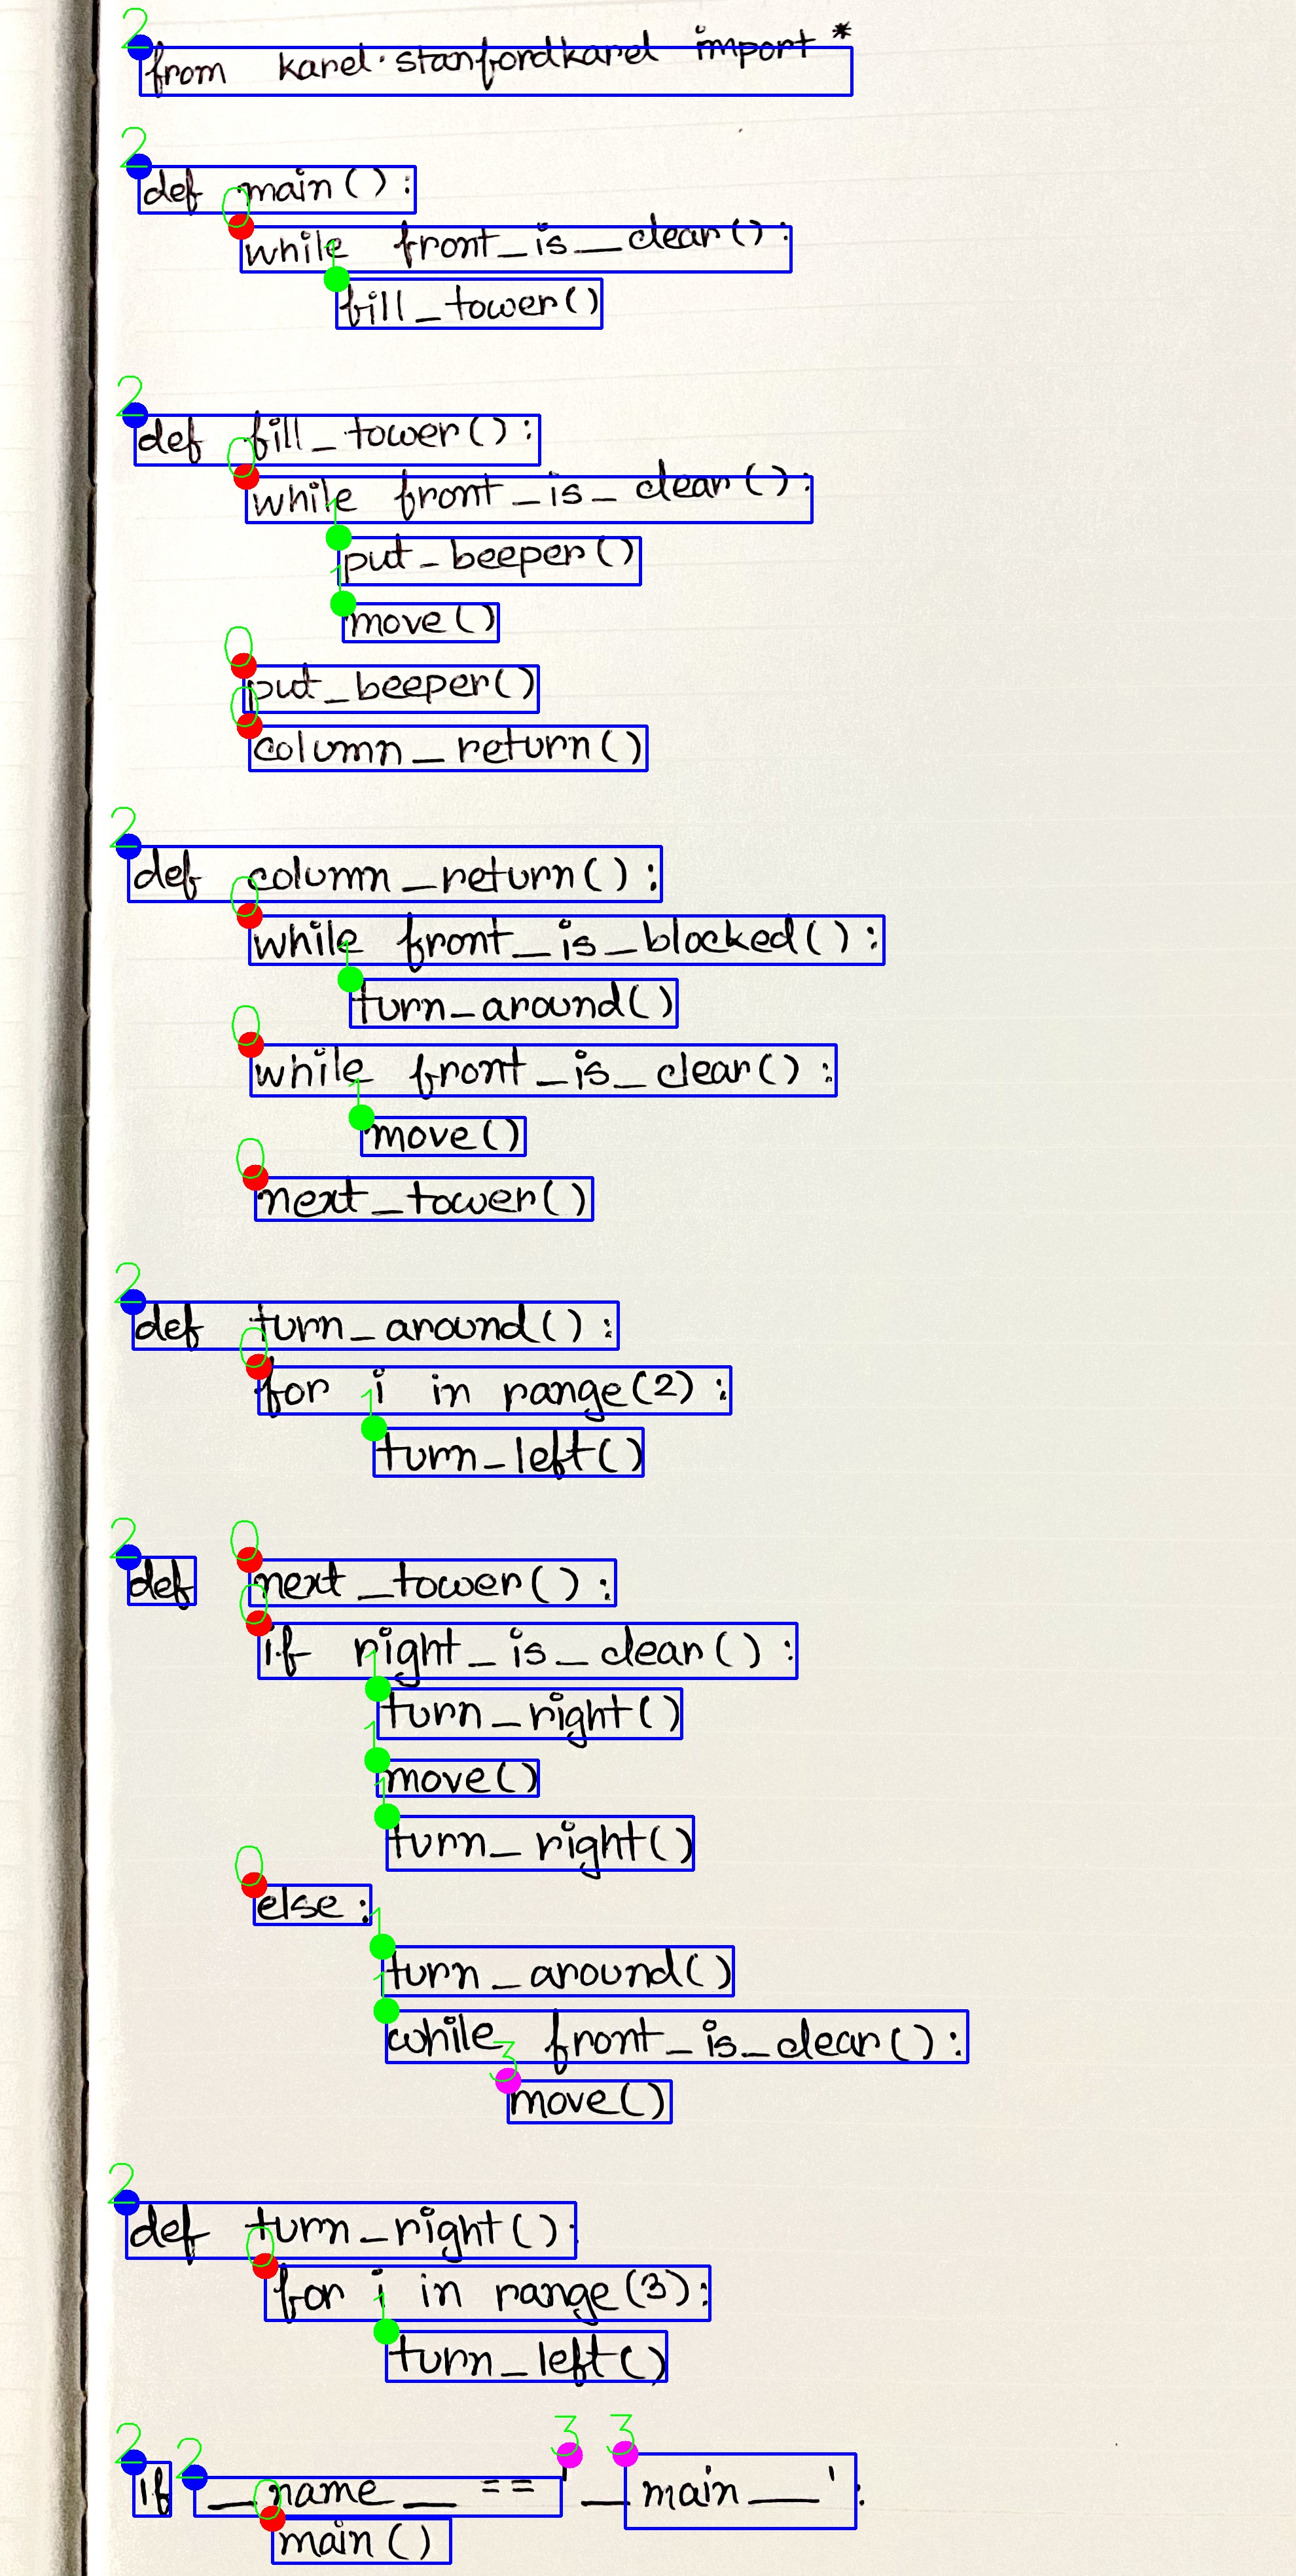 from karel.stanfordkarel import *
def main():
    while front_is_clear():
        fill_tower()
def fill_tower():
    while front_is_clear():
        put_beeper()
        move()
    put_beeper()
    column_return()
def column_return():
    while front_is_blocked():
        turn_around()
    while front_is_clear():
        move()
    next_tower()
def turn_around():
    for i in range(2):
        turn_left()
def next_tower():
    if right_is_clear():
        turn_right()
        move()
        turn_right()
    else:
        turn_around()
        while front_is_clear():
            move()
def turn_right():
    for i in range(3):
        turn_left()
if __name__ == '__main__':
    main()